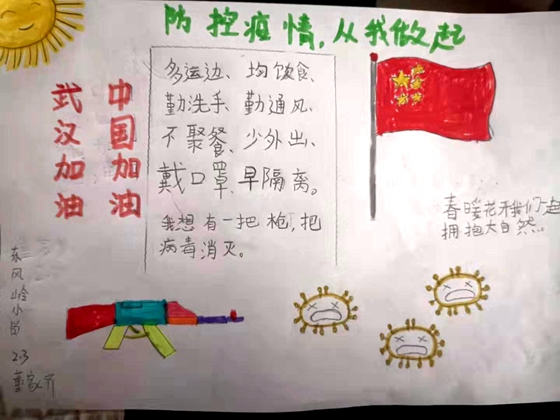 防控疫情,从我做起
武汉加油
中国加油
多运边、均饮食、
勤洗手、勤通风、
不聚餐、少外出、
戴口罩、早隔离。
我想有一把枪,把
病毒消灭。
春暖花开我们一起
拥抱大自然。
东风岭小学
2.3